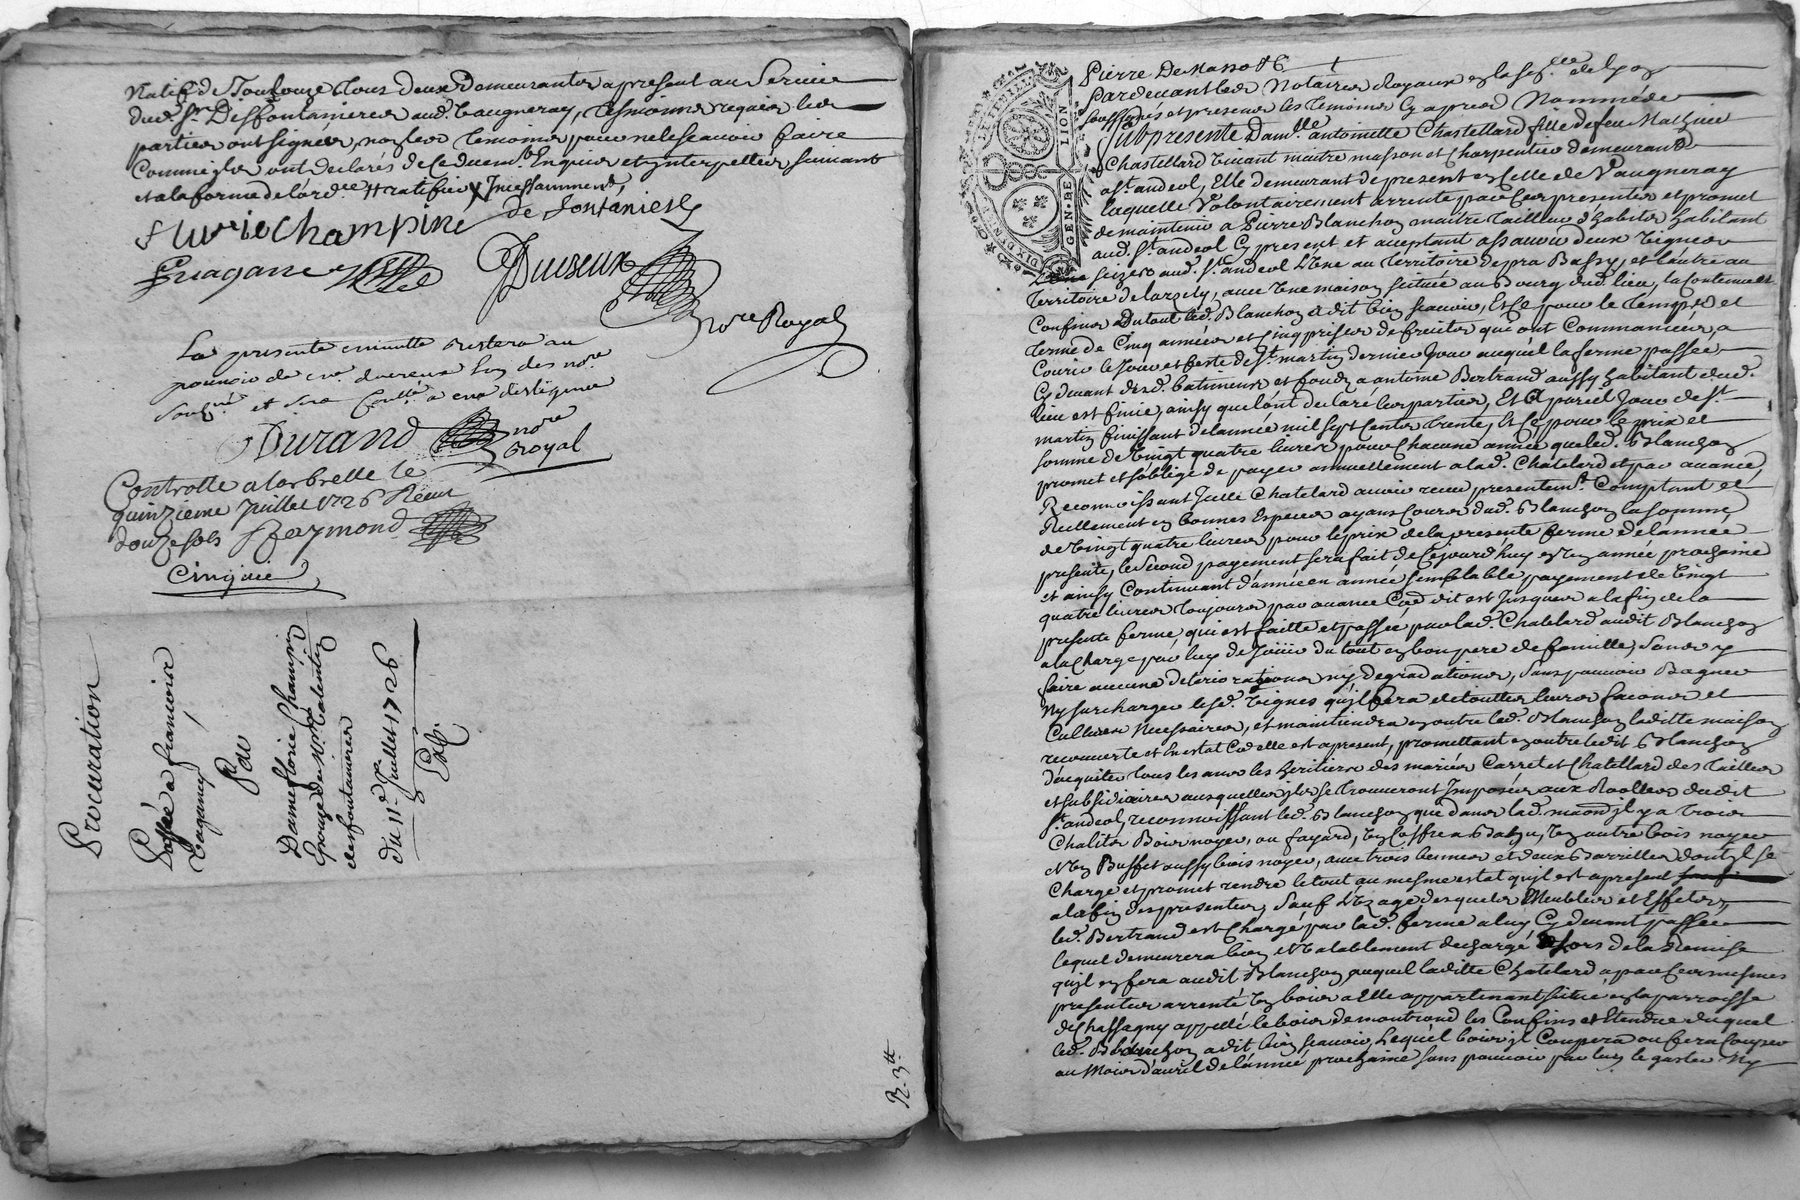 Natif de Toulouze tous deux Demeurantz a present au Service
dud. Sr. Desfontanieres aud. Vaugneray, tesmoins requis les
parties ont signées, non les temoins pour ne le scavoir faire
Comme ils ont déclarés de ce duem.t Enquis et ynterpellés suivant
et a la forme de l'ord.ce
fleurie Champine
de fontanieres
Duvseux
nore Royal
La presente minutte restera au
pouvoir de me. duvseux lun des nore.
soub.né et sera a eux
Durand nore
Royal
Controlle a larbrelle le
quinzieme Juillet 1726 Receu
douze sols Raymond
Procuration
Passée a francois
Par
Damme florie Champin
Epouse de
desfontanieres
Du 11e. Juillet 1726
Exp.
R. 3tt
GEN. RE LION
Pierre De Masso &c
Pardevant les Notaires Royaux en la de Lyon
soussignés et presens les temoins cy apres Nommés
fut presente Dam.lle antoinette Chastellard fille de feu Mathieu
Chastellard vivant maitre masson et Charpentier demeurant
a St. andeol, Elle demeurant de present en celle de Vaugneray
laquelle Volontairement arrente par ces presentes et promet
de maintenir a Pierre Blanchon maitre tailleur d'habits habitant
aud. St. andeol cy present et acceptant assavoir deux vignes
sizes aud. St. andeol L'une au territoire de pra Bassy, et l'autre au
territoire de larsily, avec Une maison scittuée au Bourg dud. lieu, la Contenue et
Confins Du tout led. Blanchon a dit bien scavoir, Et Ce pour le temps et
terme de Cinq années et Cinq prises de fruits qui ont Commancées a
Courir le Jour et feste de St. martin dernier Jour auquel la ferme passée
Cy devant desd. batimens et fonds a antoine Bertrand aussy habitant dud.
lieu est finie, ainsy que l'ont declaré les parties, Et A pareil Jour de St.
martin finissant de l'année mil sept Cents trente, Et Ce pour le prix et
somme de vingt quatre livres pour Chacune année que led. Blanchon
promet et s'oblige de payer annuellement a lad. Chatelard et par avance,
Reconnoissant Icelle Chatelard avoir receu presentem.t Comptant et
Reellement en bonnes Especes ayans Cours dud. Blanchon la somme
de vingt quatre livres pour le prix de la presente ferme de l'année
presente, le second payement sera fait de Cejourd'huy en un année prochaine
et ainsy Continuant d'année en année semblable payement de vingt
quatre livres toujours par avance Co.e dit est Jusques a la fin de la
presente ferme, qui est faitte et passée par lad. Chatelard audit Blanchon
a la charge par luy de Jouir du tout en bon pere de famille, sans y
faire aucune deteriorations ny degradations, sans pouvoir
Ny surcharger lesd. vignes qu'il fera de touttes leurs facons et
Cultures Necessaires, et maintiendra en outre led. Blanchon laditte maison
recouverte et En estat Co.e elle est a present, promettant en outre ledit Blanchon
d'acquiter tous les ans les heritiers des mariés Carret et Chatellard des tailles
et subsidiaires ausquelles ils se trouveront Imposés aux Roolles dudit
St. andeol, reconnoissant led. Blanchon que dans lad. maison il y a trois
Chalits Bois noyer, ou fayard, Un Coffre a Bahu, Un autre bois noyer
et Un Buffet aussy bois noyer, avec trois bennes et deux Barrilles dont il se
Charge et promet rendre le tout au mesme estat qu'il est a present
a la fin des presentes, Sauf L'Uzage desquels Meubles et Effets,
led. Bertrand est Chargé par lad. ferme a luy Cy devant passée
lequel demeurera bien et Valablement decharge Lors de la Remise
qu'il en fera audit Blanchon auquel laditte Chatelard a par ces mesmes
presentes arrenté Un bois a Elle appartenant scitué en la parroisse
de Chassagny appellé le bois de montrond les Confins et Etendue duquel
led. Blanchon a dit bien scavoir, Lequel bois il Coupera ou fera couper
au Mois d'avril de l'année prochaine sans pouvoir par luy le gaster Ny